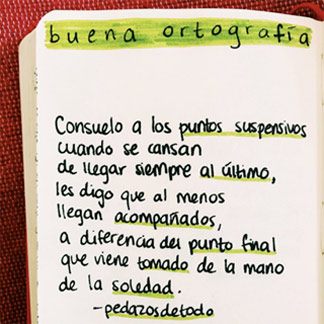 buena ortografía
Consuelo a los puntos suspensivos
cuando se cansan
de llegar siempre al último,
les digo que al menos
llegan acompañados,
a diferencia del punto final
que viene tomado de la mano
de la soledad.
-pedazosdetodo